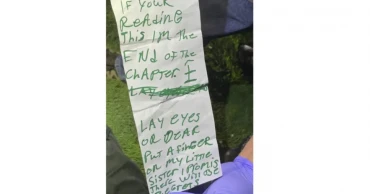 IF YOUR
READING
THIS IM THE
END OF THE
CHAPTER I
LAY EYES
OR DEAR
PUT A FINGER
ON MY LITTLE
SISTER I PROMIS
THERE WILL BE